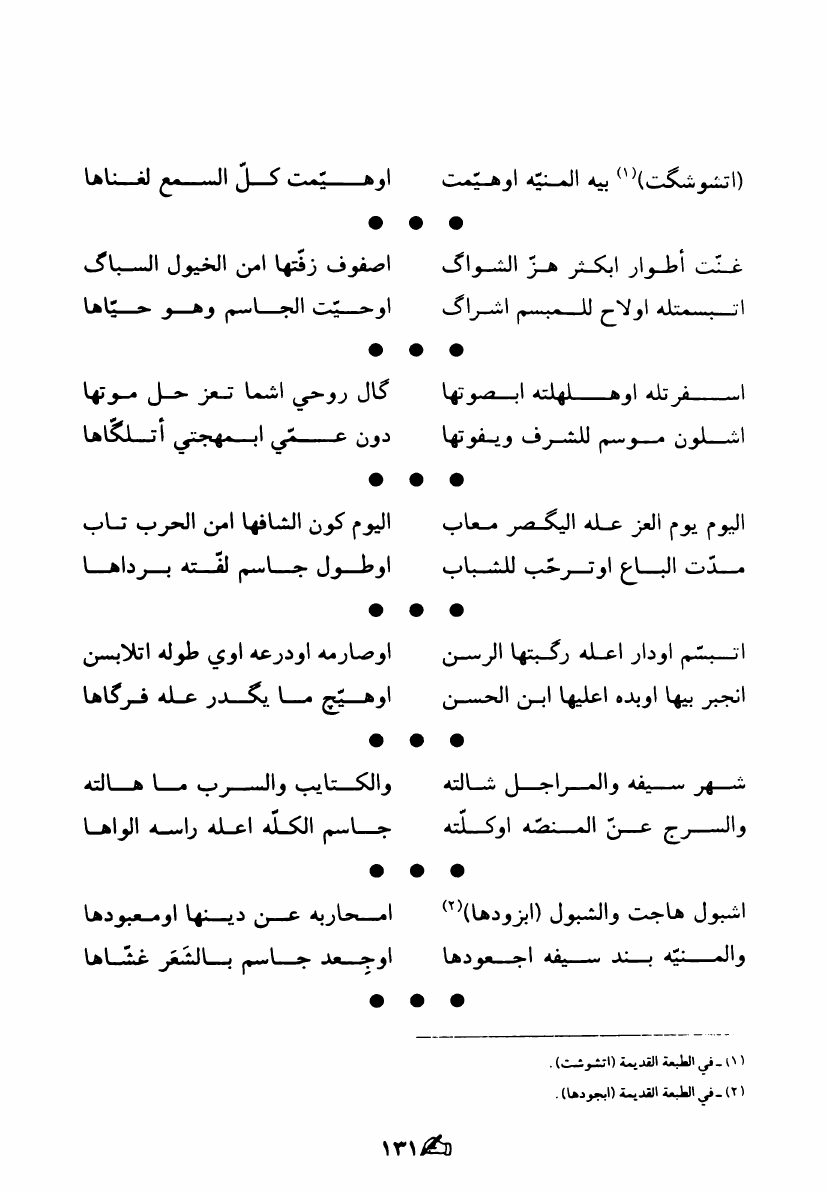 (اتشوشگت)(١) بيه المنيّه اوهيّمت اوهيّمت كلّ السمع لغناها
● ● ●
غنّت أطوار ابكثر هزّ الشواگ اصفوف زفّتها امن الخيول السباگ
اتبسمتله اولاح للمبسم اشراگ اوحيّت الجاسم وهو حيّاها
● ● ●
اسفرتله اوهلهلته ابصوتها گال روحي اشما تعز حل موتها
اشلون موسم للشرف ويفوتها دون عمّي ابمهجتي أتلگّاها
● ● ●
اليوم يوم العز عله اليگصر معاب اليوم كون الشافها امن الحرب تاب
مدّت الباع اوترحّب للشباب اوطول جاسم لفّته برداها
● ● ●
اتبسّم اودار اعله رگبتها الرسن اوصارمه اودرعه اوي طوله اتلابسن
انجبر بيها اوبده اعليها ابن الحسن اوهيّج ما يگدر عله فرگاها
● ● ●
شهر سيفه والمراجل شالته والكتايب والسرب ما هالته
والسرج عنّ المنصّه اوكلّته جاسم الكلّه اعله راسه الواها
● ● ●
اشبول هاجت والشبول (ابزودها)(٢) امحاربه عن دينها اومعبودها
والمنيّه بند سيفه اجعودها اوجِعد جاسم بالشَعَر غشّاها
● ● ●
(١) ـ في الطبعة القديمة (اتشوشت).
(٢) ـ في الطبعة القديمة (ابجودها).
١٣١